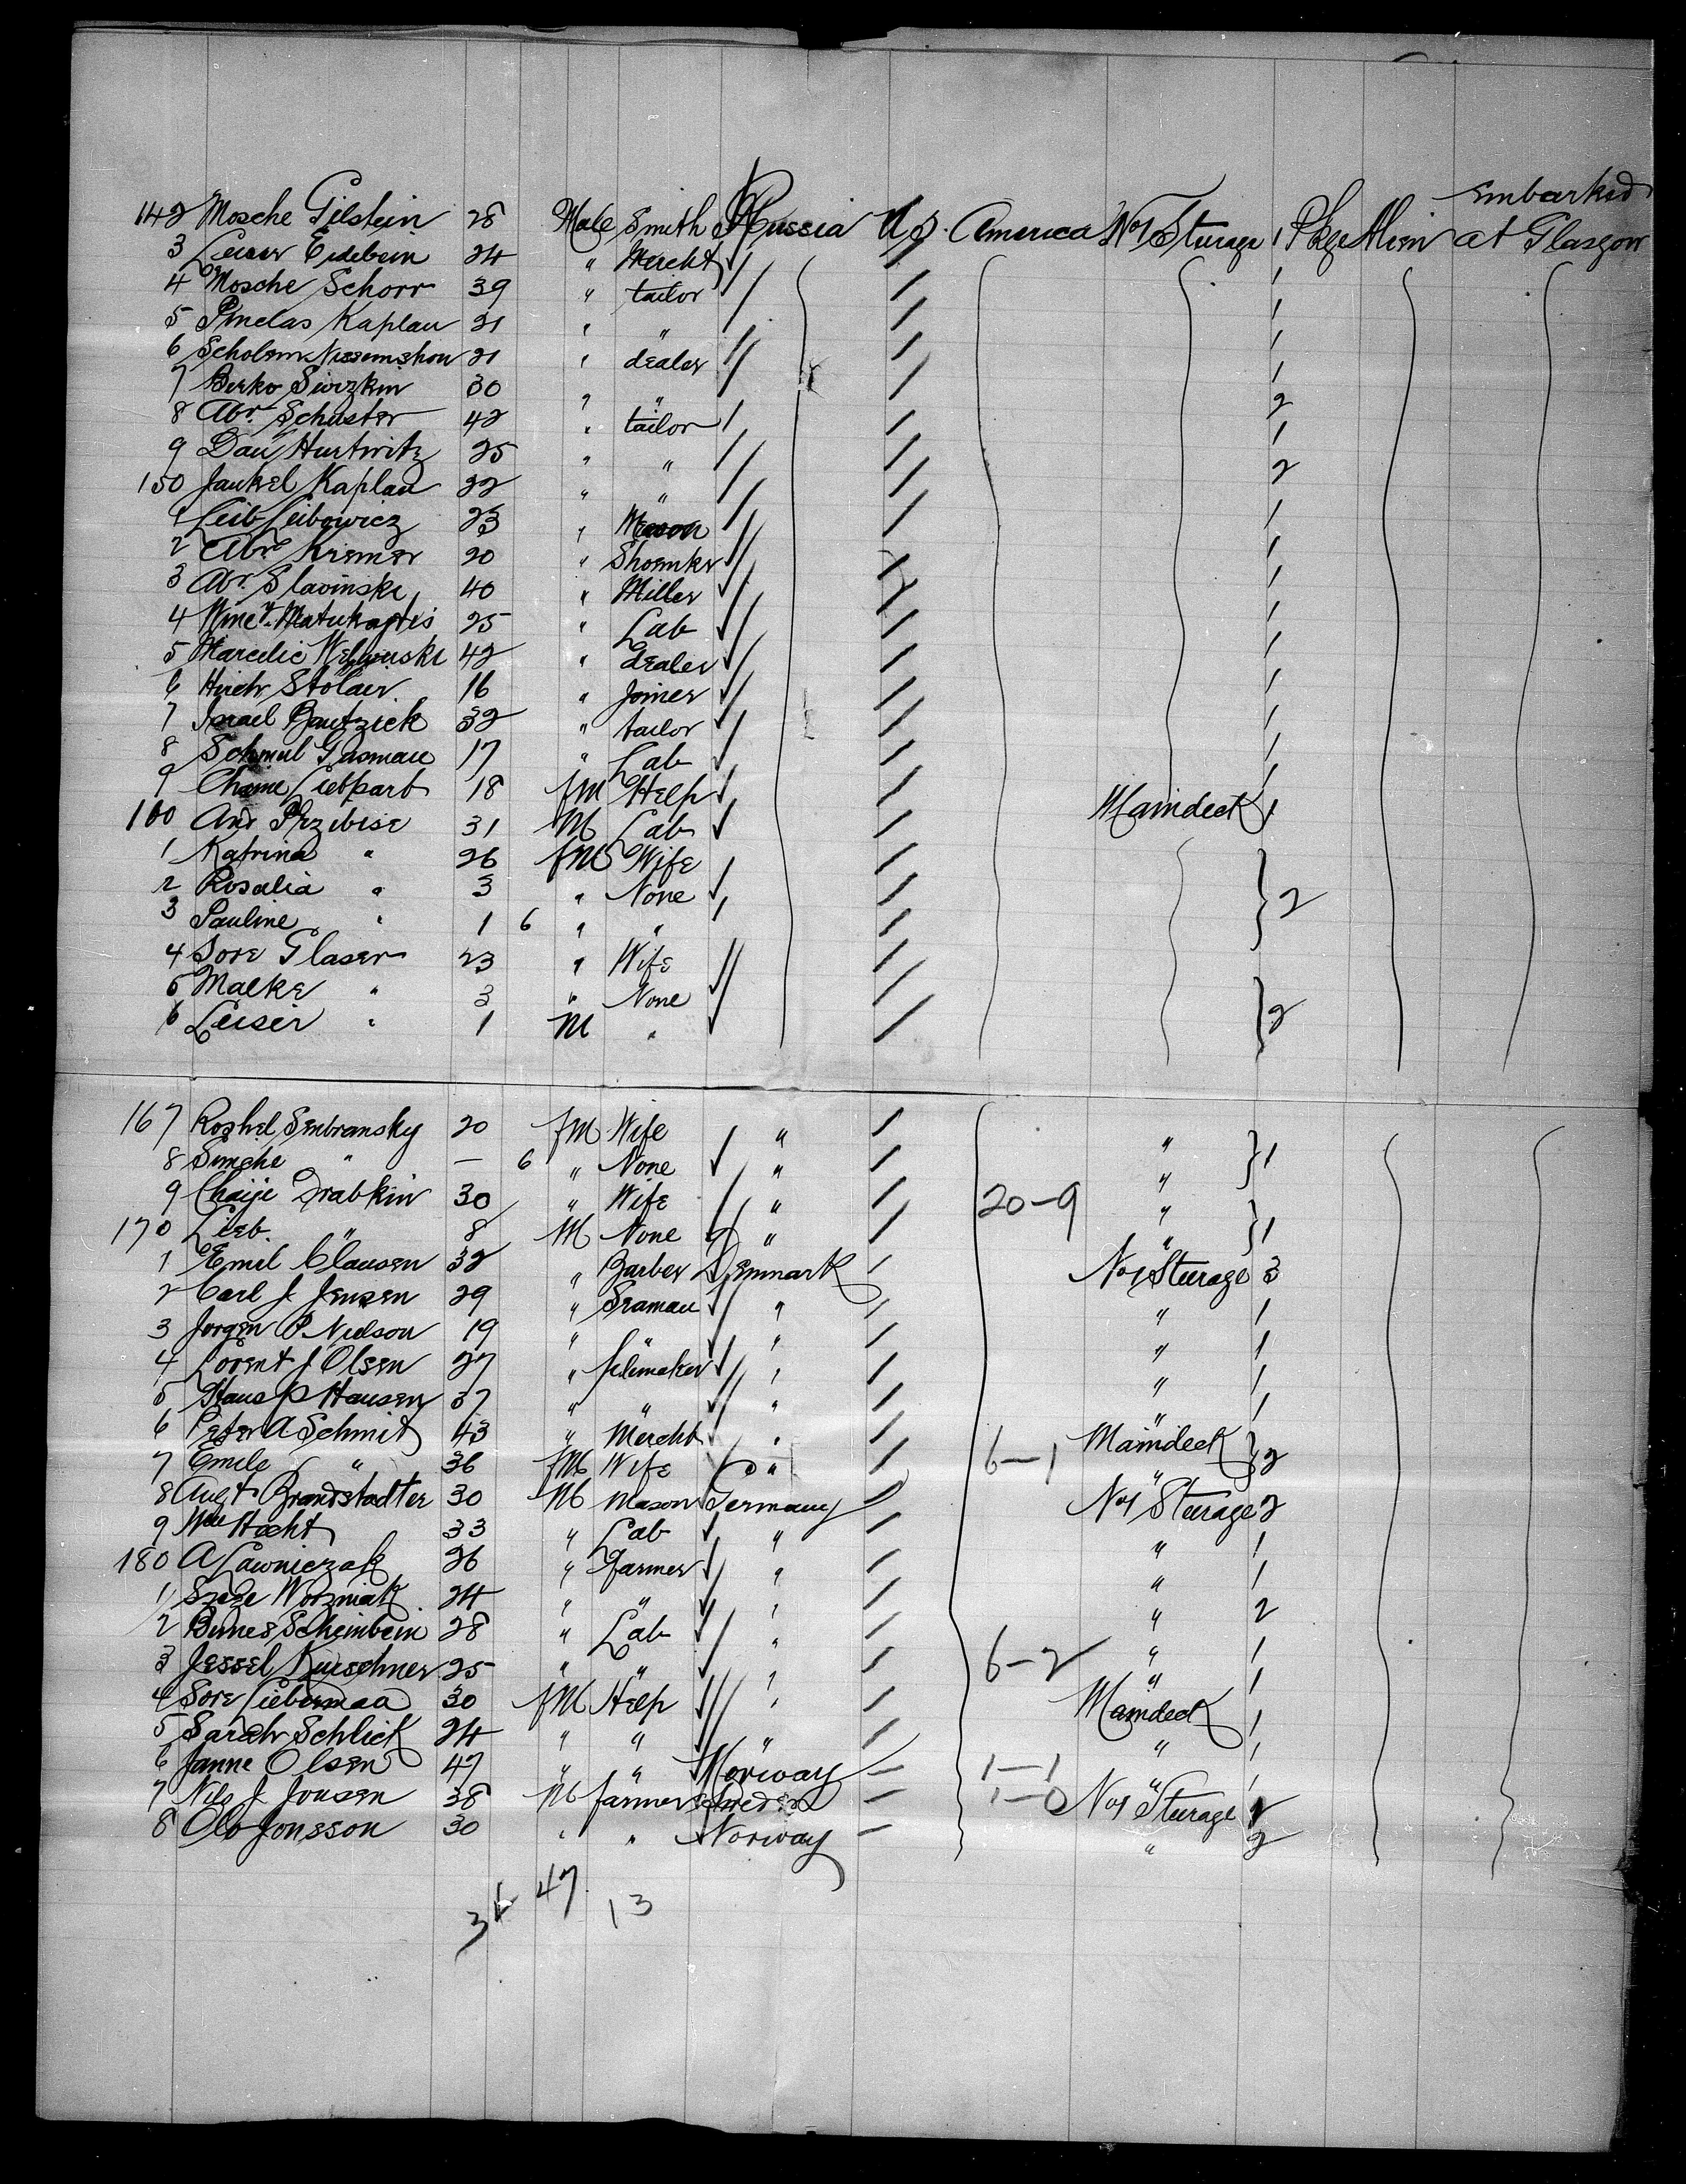 142 Mosche Gilstein 28 Male Smith Russia U.S. America No 1 Sturage 1 Pkge Alien Embarked at Glasgow
3 Leiser Eidebein 24 " Mercht 1
4 Mosche Schorr 39 " tailor 1
5 Pinelas Kaplan 21 " " 1
6 Scholem 21 " dealer 1
7 Berko 30 " " 2
8 Abr. Schuster 42 " tailor 1
9 Dav Hurtwitz 25 " " 2
150 Jankel Kaplan 22 " " 1
1 Leib Leibowicz 23 " Mason 1
2 Abr Kremer 20 " Shoemker 1
3 Abr. Slavinski 40 " Miller 1
4 25 " Lab 1
5 42 " dealer 1
6 Hirch Stolaer 16 " Joiner 1
7 Israel 32 " tailor 1
8 Schmul Glasman 17 " Lab 1
9 18 fM Help 1
160 And 31 M Lab Maindeck 1
1 Katrina " 26 fM Wife
2 Rosalia " 3 " None 2
3 Pauline " 1 6 " "
4 Sore Glaser 23 " Wife
5 Malke " 3 " None 2
6 Leiser " 1 M "
167 Roshel Sembransky 20 fM Wife " "
8 Simche " — 6 " None " " 1
9 Chaije Drabkin 30 " Wife " 20-9 "
170 Lieb " 8 M None " " 1
1 Emil Clausen 32 " Barber Denmark No 1 Sturage 3
2 Carl J Jensen 29 " Seaman " " 1
3 Jorgen P. Nielson 19 " " " " 1
4 Lorent J Olsen 27 " filemaker " " 1
5 Hans P Hansen 37 " " " " 1
6 Peter A Schmit 43 " Mercht " Maindeck
7 Emile " 36 fM Wife " 6-1 " 2
8 Augt Brandstadter 30 M Mason Germany No 1 Sturage 2
9 Wm Hecht 33 " Lab " " 1
180 A Lawniczak 26 " farmer " " 1
1 Wozniak 24 " " " " 2
2 Scheinbein 28 " Lab " " 1
3 Jessel Kurschner 25 " " " 6-2 " 1
4 Sore Lieberman 30 fM Help " Maindeck 1
5 Sarah Schlick 24 " " " " 1
6 Janne Olsen 47 " " Norway 1-1 " 1
7 Nils J Jonsen 38 M farmer Sweden 1-0 No 1 Sturage
8 Olo Jonsson 30 " " Norway " 2
47 13